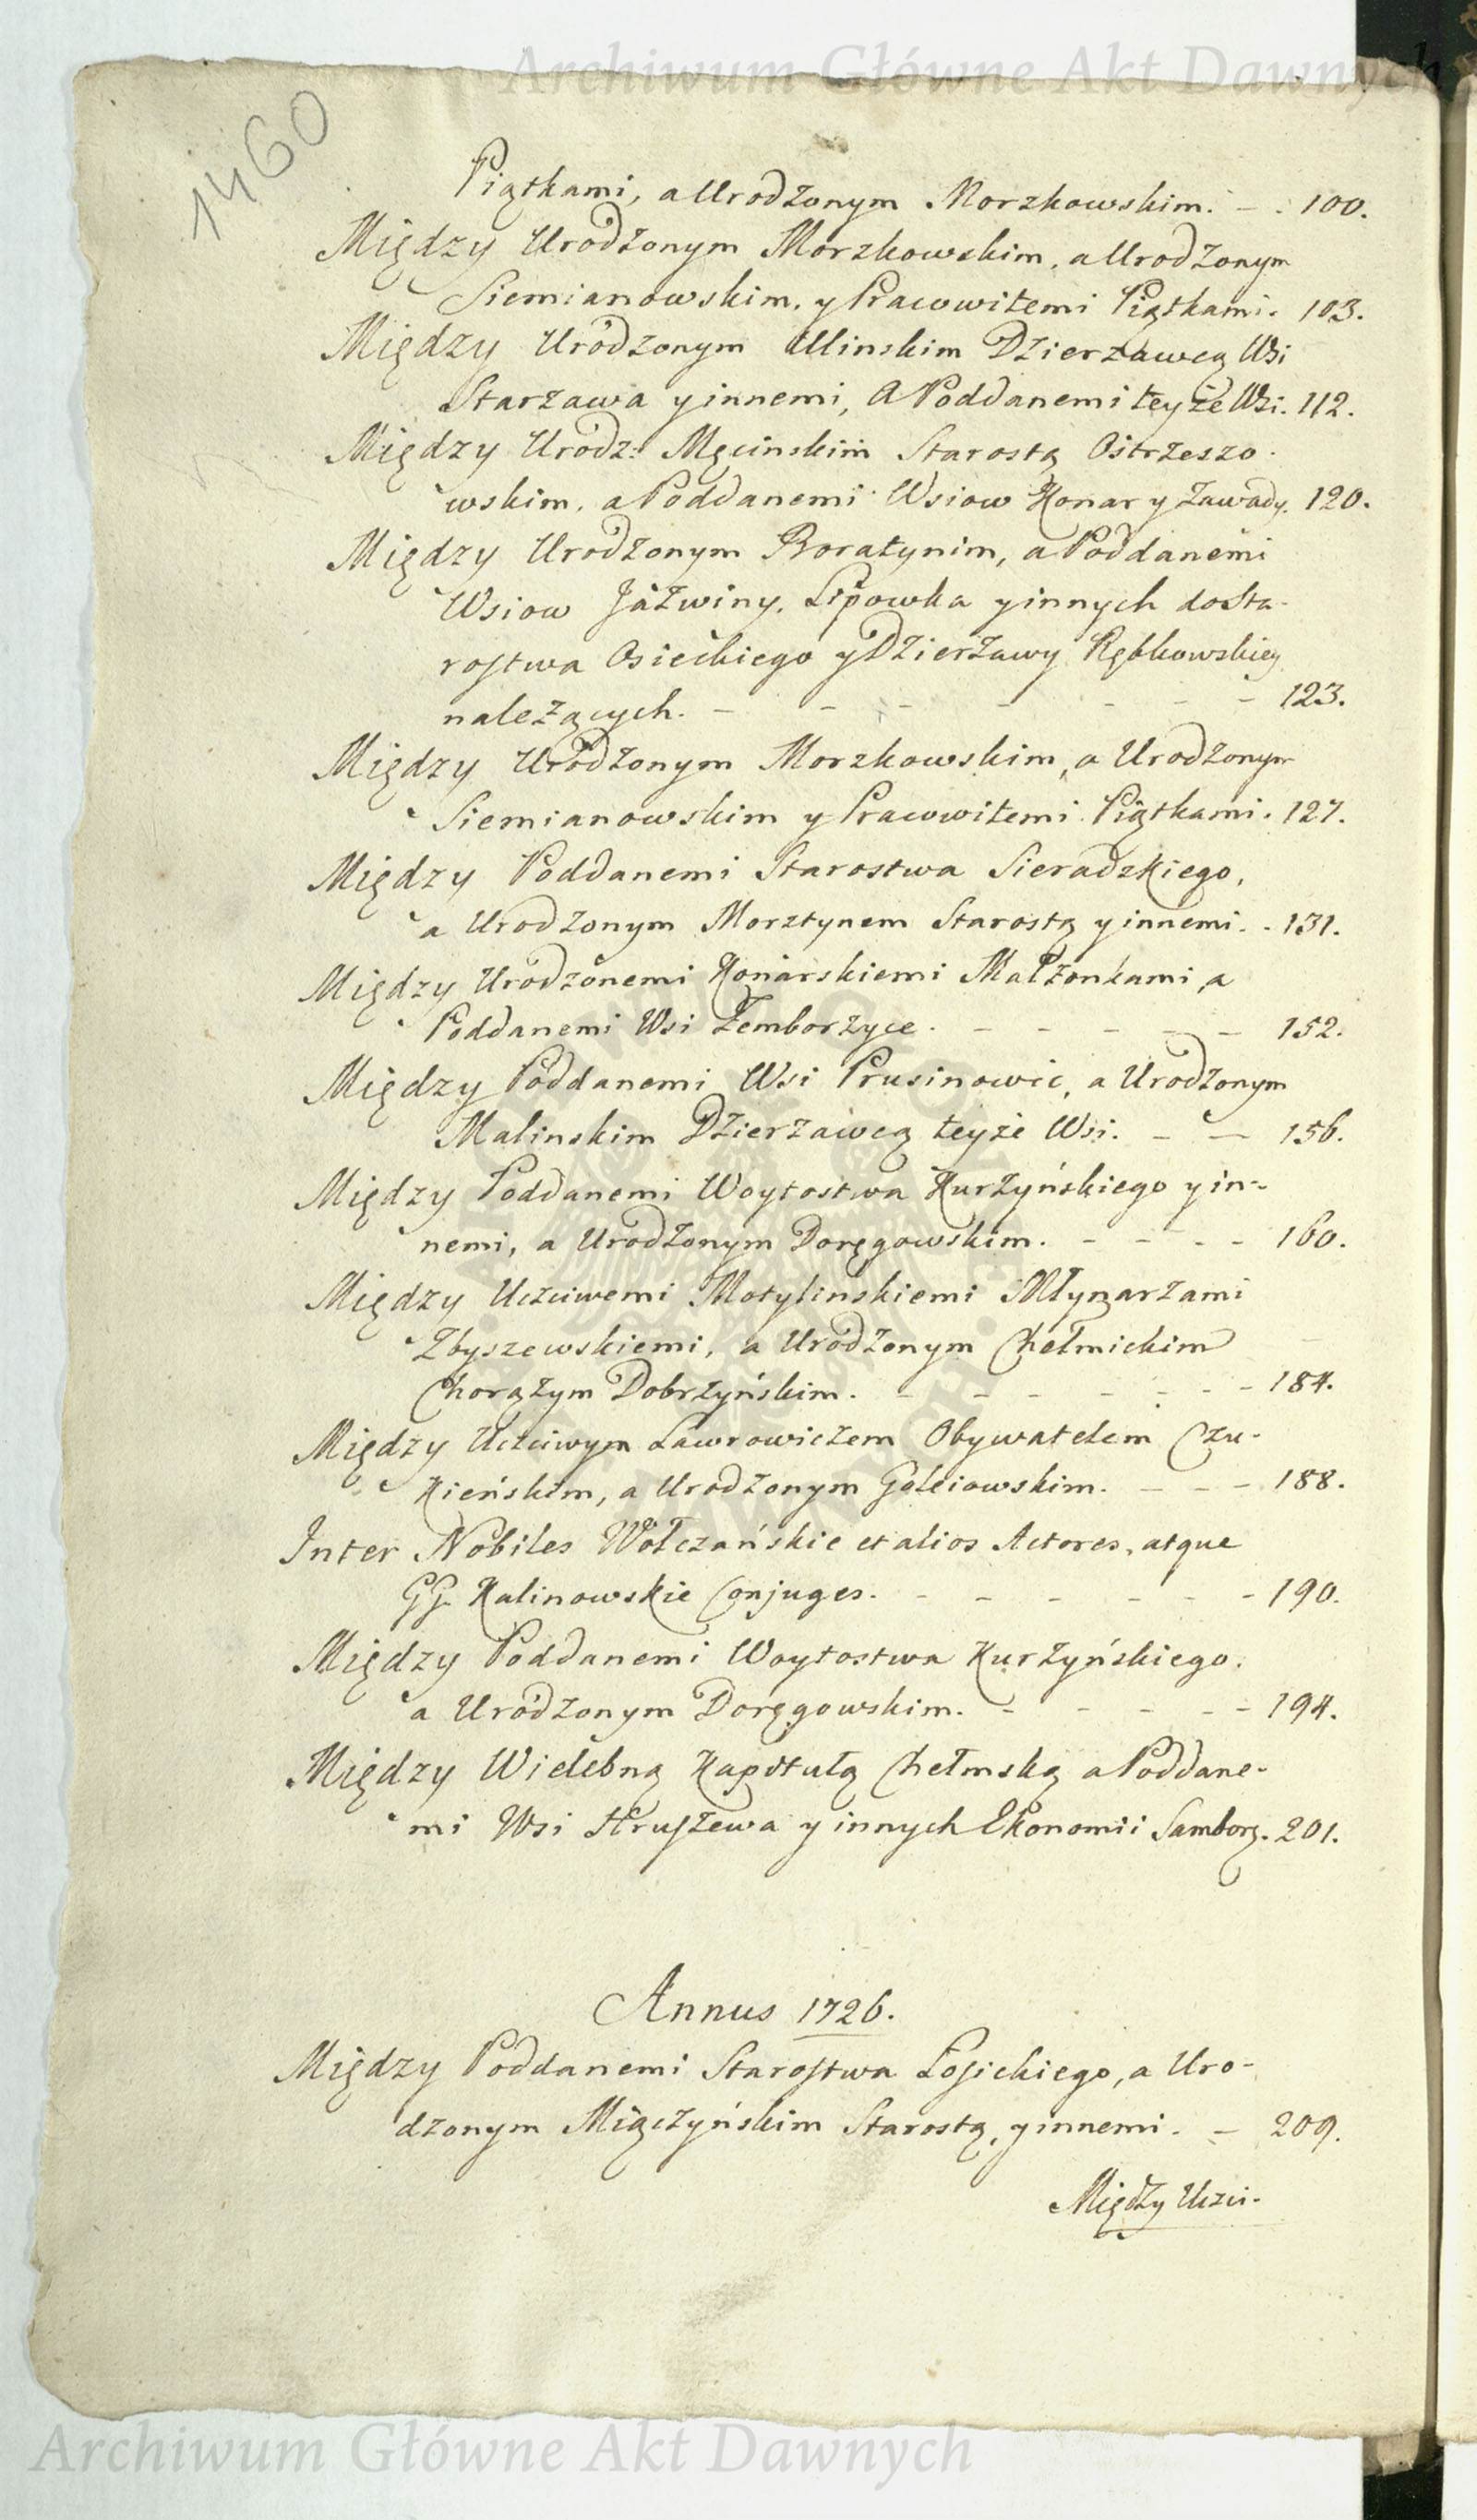 Archiwum Główne Akt Dawnych
1460
Piątkami, a Urodzonym Morzkowskim. - . 100.
Między Urodzonym Morzkowskim, a Urodzonym
Siemianowskim, y Pracowitemi Piątkami. 103.
Między Urodzonym Ulinskim Dzierzawcą Wsi
Starzawa y innemi, A Poddanemi teyże Wsi. 112.
Między Urodz: Męcinskim Starostą Ostrzeszo-
wskim, a Poddanemi Wsiow Konar y Zawady. 120.
Między Urodzonym Boratynim, a Poddanemi
Wsiow Jaźwiny, Lipowka y innych do Sta-
rostwa Osieckiego y Dzierżawy Rębkowskiey
należących. - - - - - - - 123.
Między Urodzonym Morzkowskim, a Urodzonym
Siemianowskim y Pracowitemi Piątkami. 127.
Między Poddanemi Starostwa Sieradzkiego,
a Urodzonym Morsztynem Starostą y innemi. . 131.
Między Urodzonemi Konarskiemi Małżonkami, a
Poddanemi Wsi Zemborzyce. - - - - - - 152.
Między Poddanemi Wsi Prusinowic, a Urodzonym
Malinskim Dzierzawcą teyże Wsi. - - 156.
Między Poddanemi Woytostwa Kurzyńskiego y in-
nemi, a Urodzonym Doręgowskim. - - - - 160.
Między Uczciwemi Motylinskiemi Młynarzami
Zbyszewskiemi, a Urodzonym Chełmickim
Chorążym Dobrzyńskim. - - - - - - - 184.
Między Uczciwym Lawrowiczem Obywatelem Czu-
Kieńskim, a Urodzonym Gołeiowskim. - - - 188.
Inter Nobiles Wołczańskie et alios Actores, atque
GG Kalinowskie Conjuges. - - - - - - 190.
Między Poddanemi Woytostwa Kurzyńskiego,
a Urodzonym Doręgowskim. - - - - - 194.
Między Wielebną Kapitułą Chełmską a Poddane-
mi Wsi Hruszewa y innych Ekonomii Samborg. 201.
Annus 1726.
Między Poddanemi Starostwa Łosickiego, a Uro-
dzonym Miączyńskim Starostą, y innemi. - 209.
Między Uczci-
Archiwum Główne Akt Dawnych